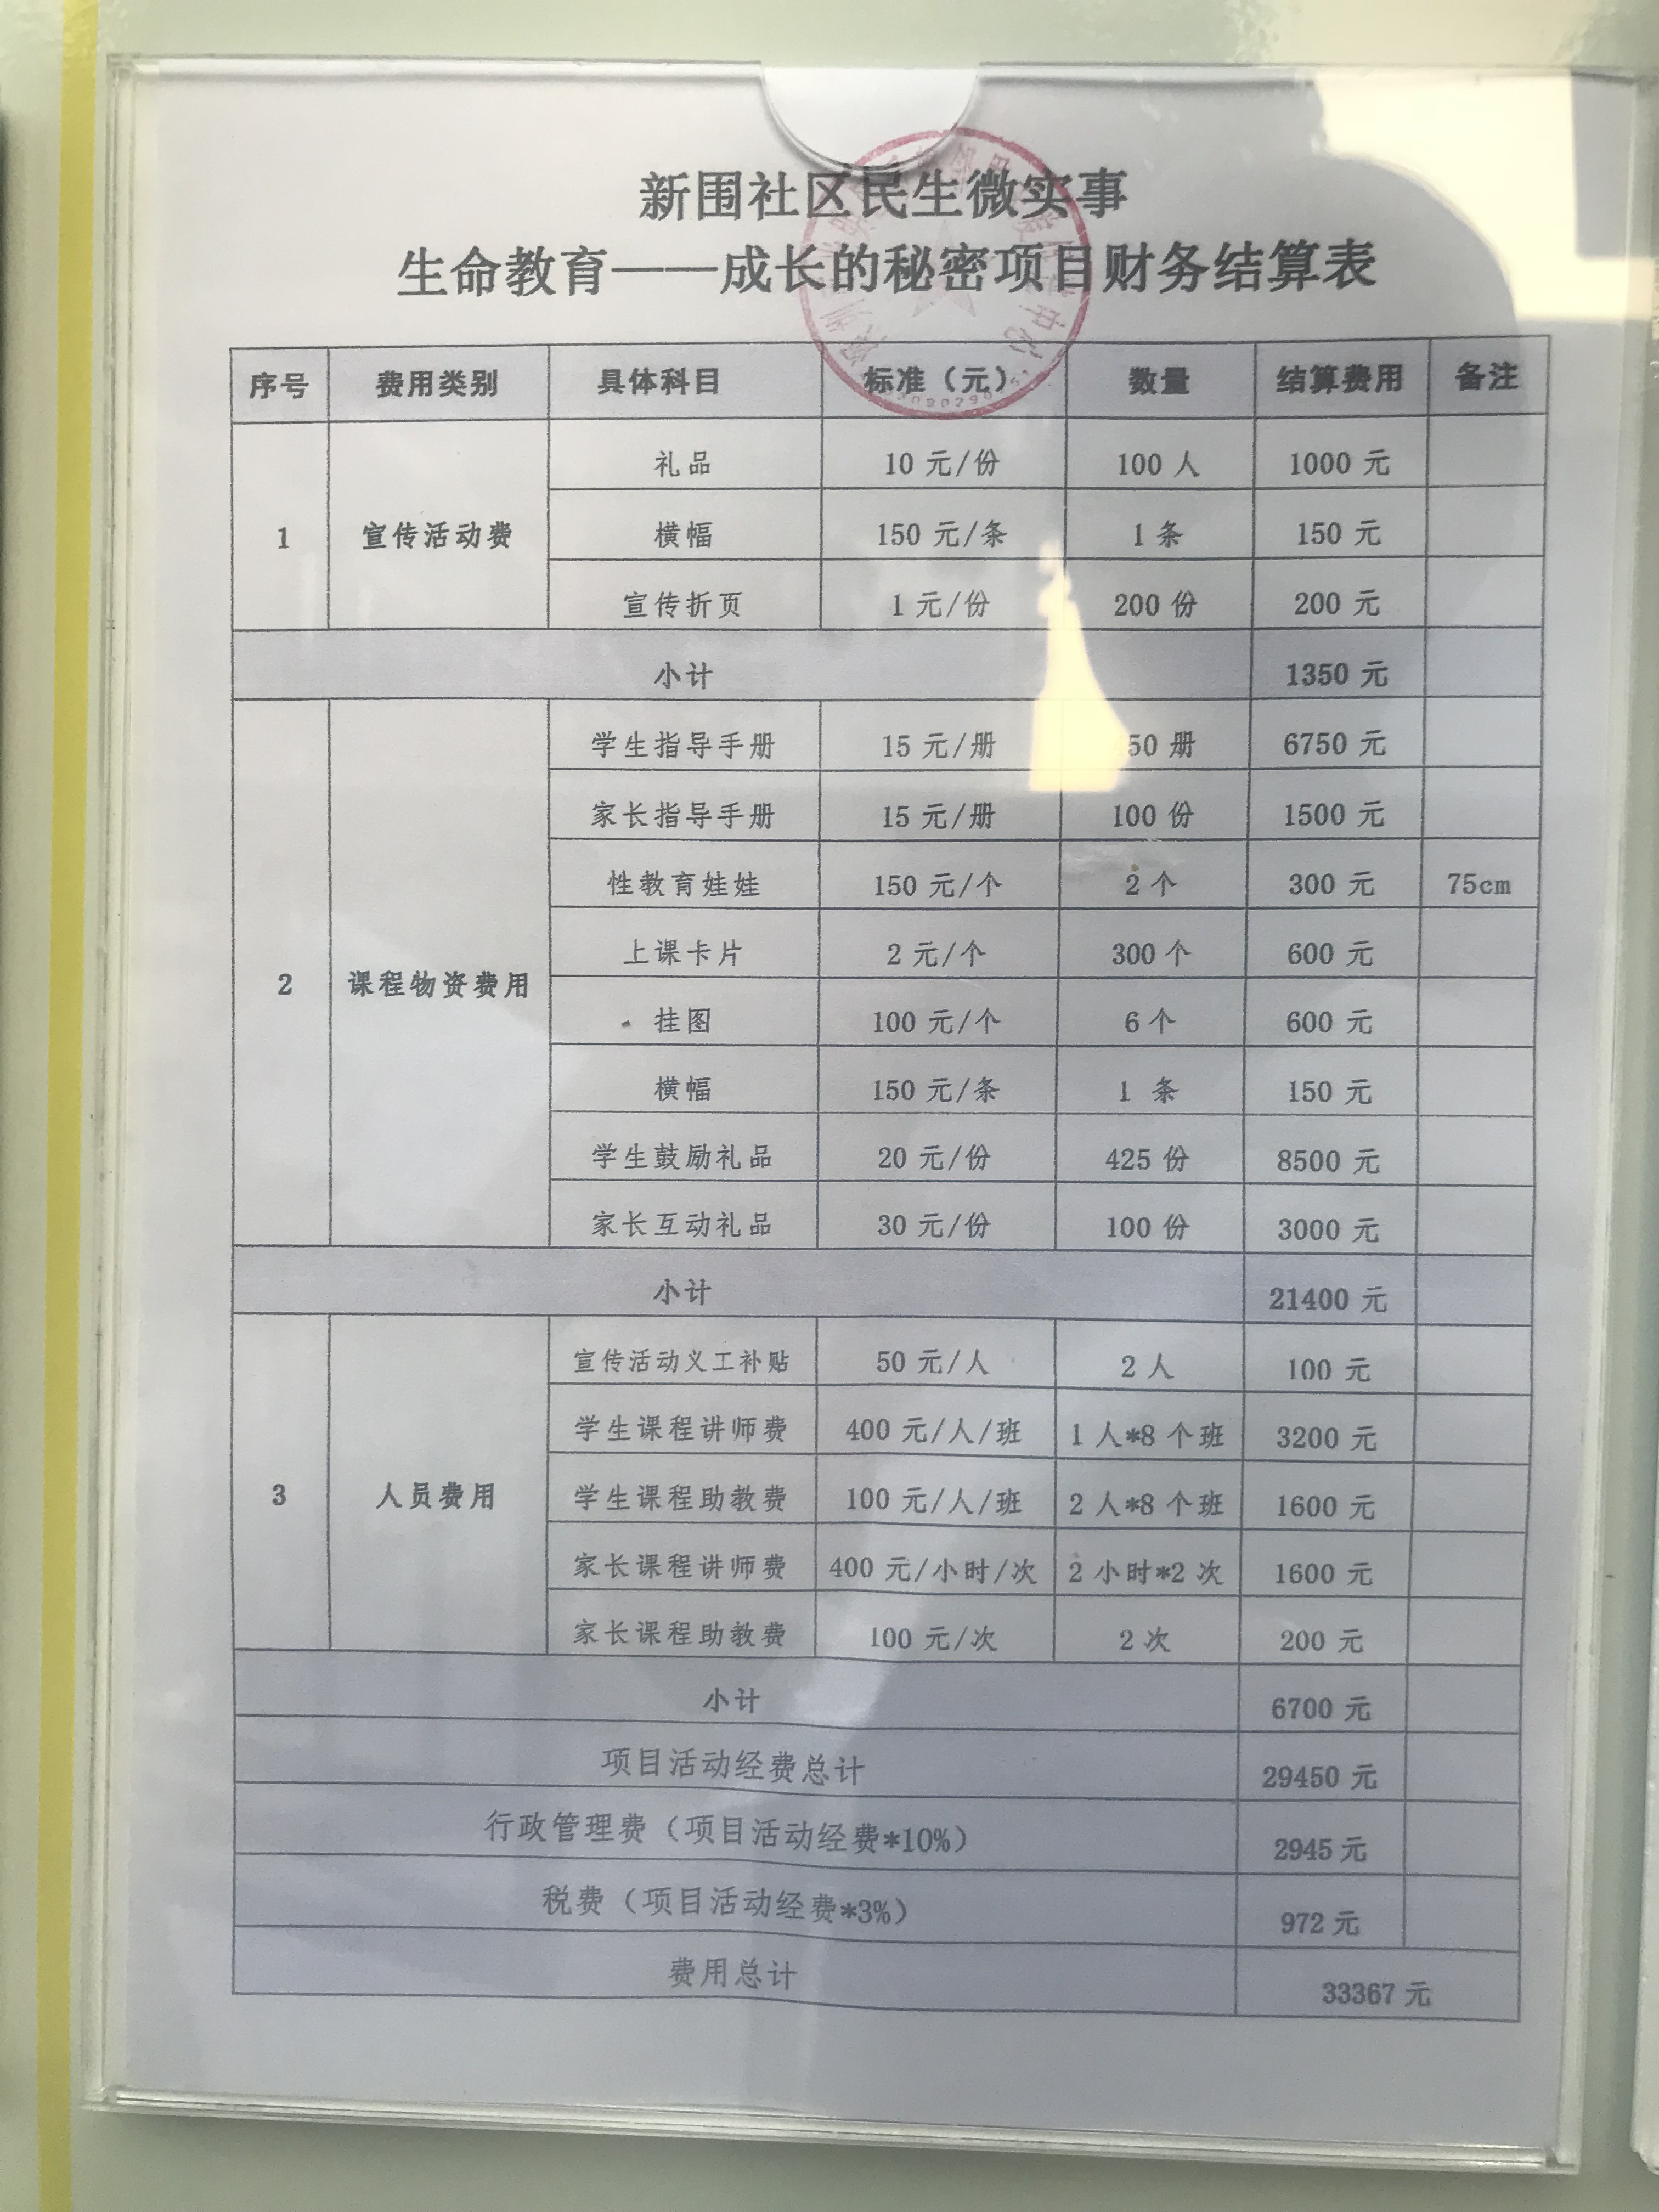 新围社区民生微实事
生命教育——成长的秘密项目财务结算表
序号 费用类别 具体科目 标准（元） 数量 结算费用 备注
1 宣传活动费 礼品 10 元/份 100 人 1000 元
横幅 150 元/条 1 条 150 元
宣传折页 1 元/份 200 份 200 元
小计 1350 元
2 课程物资费用 学生指导手册 15 元/册 50 册 6750 元
家长指导手册 15 元/册 100 份 1500 元
性教育娃娃 150 元/个 2 个 300 元 75cm
上课卡片 2 元/个 300 个 600 元
挂图 100 元/个 6 个 600 元
横幅 150 元/条 1 条 150 元
学生鼓励礼品 20 元/份 425 份 8500 元
家长互动礼品 30 元/份 100 份 3000 元
小计 21400 元
3 人员费用 宣传活动义工补贴 50 元/人 2 人 100 元
学生课程讲师费 400 元/人/班 1 人*8 个班 3200 元
学生课程助教费 100 元/人/班 2 人*8 个班 1600 元
家长课程讲师费 400 元/小时/次 2 小时*2 次 1600 元
家长课程助教费 100 元/次 2 次 200 元
小计 6700 元
项目活动经费总计 29450 元
行政管理费（项目活动经费*10%） 2945 元
税费（项目活动经费*3%） 972 元
费用总计 33367 元